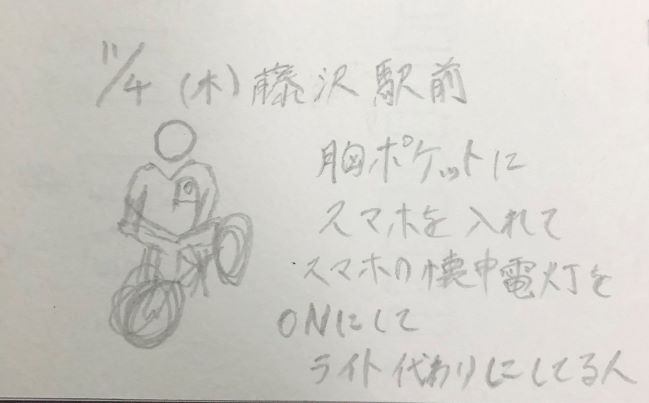 11/4 (木) 藤沢駅前
胸ポケットに
スマホを入れて
スマホの懐中電灯を
ONにして
ライト代わりにしてる人